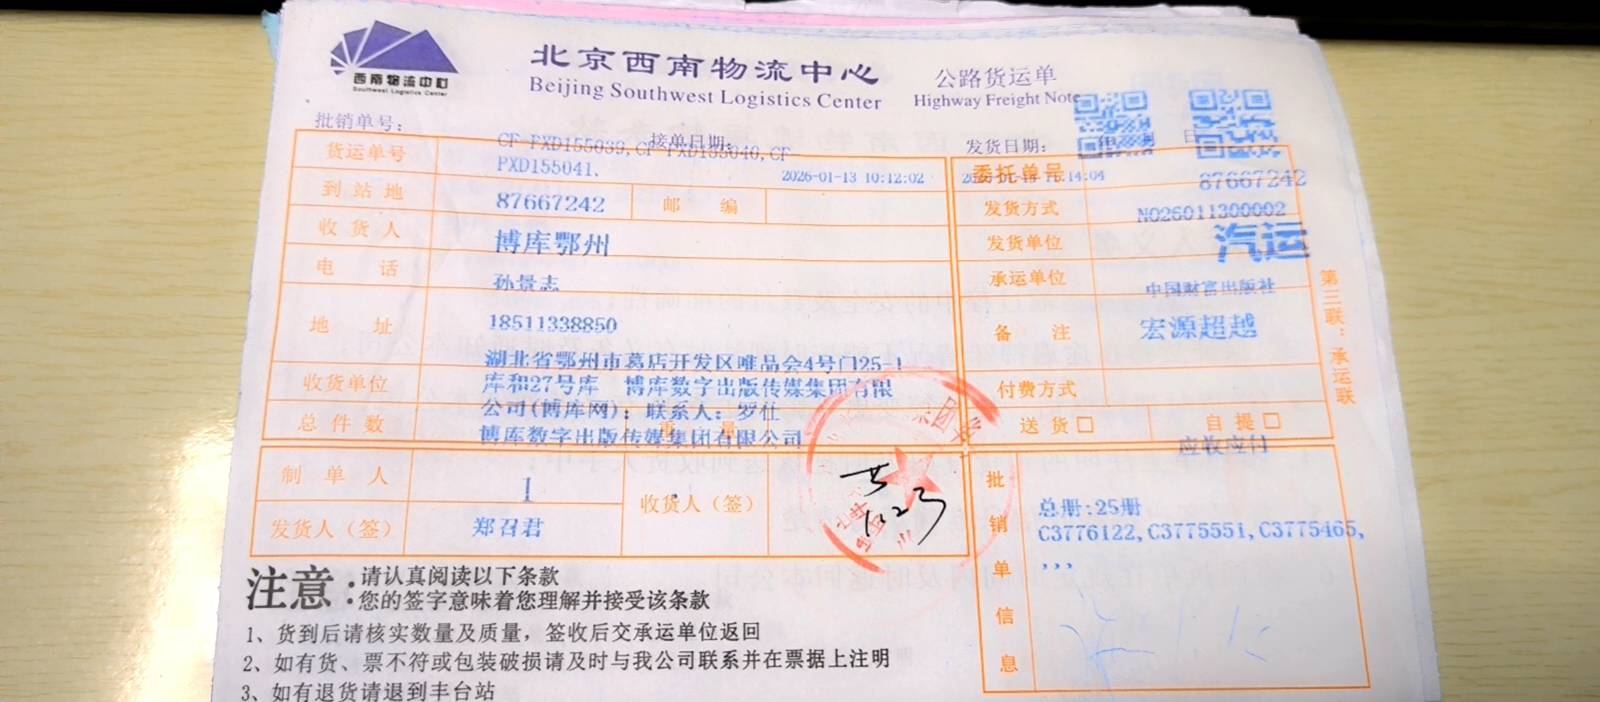 西南物流中心
Southwest Logistics Center
北京西南物流中心
Beijing Southwest Logistics Center
公路货运单
Highway Freight Note
批销单号:
接单日期:
发货日期:
CF-PXD155039,CF-PXD155040,CF-
PXD155041、
2026-01-13 10:12:02
货运单号
87667242
邮 编
委托单号
87667242
到站地
博库鄂州
发货方式
NO26011300002
汽运
收货人
孙景志
发货单位
中国财富出版社
电 话
18511338850
承运单位
宏源超越
地 址
湖北省鄂州市葛店开发区唯品会4号门25-1
库和27号库 博库数字出版传媒集团有限
公司(博库网); 联系人: 罗仕
备 注
收货单位
博库数字出版传媒集团有限公司
付费方式
总件数
重 量
送货□
自提□
应收应付
制单人
1
收货人(签)
发货人(签)
郑召君
批销单信息
总册:25册
C3776122,C3775551,C3775465,
,,,
第三联:承运联
注意:
请认真阅读以下条款
您的签字意味着您理解并接受该条款
1、货到后请核实数量及质量，签收后交承运单位返回
2、如有货、票不符或包装破损请及时与我公司联系并在票据上注明
3、如有退货请退到丰台站